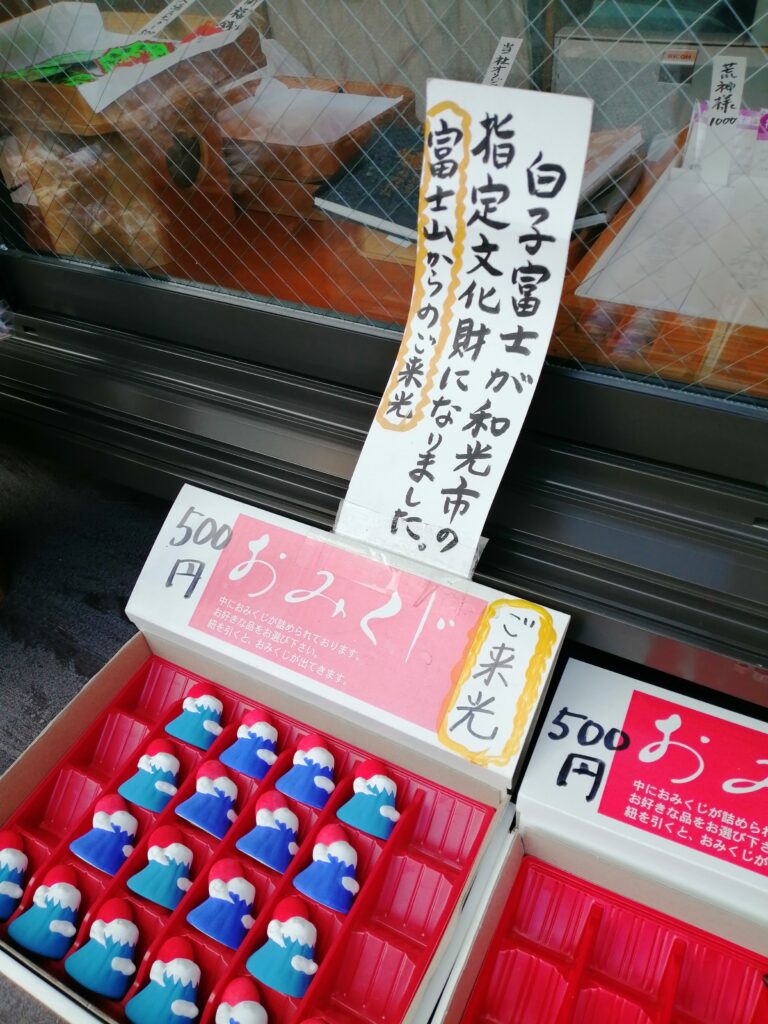 RICOH
荒神様
1000
白子富士が和光市の
指定文化財になりました。
富士山からのご来光
500
円
おみくじ
中におみくじが詰められております。
お好きな品をお選び下さい。
紐を引くと、おみくじが出てきます。
ご来光
500
円
おみ
中におみくじが詰められて
お好きな品をお選び下さい。
紐を引くと、おみくじが